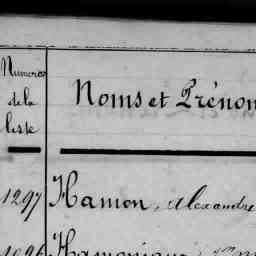 Numéros
de la
liste
Noms et Prénom
1297 Hamon, Alexandre
Hamonique